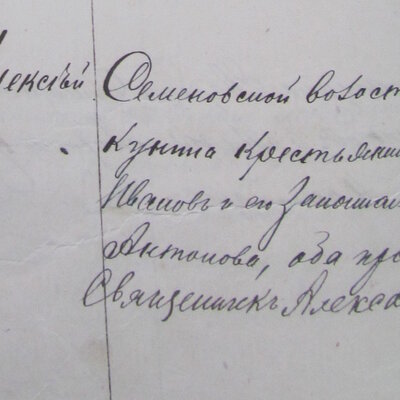 лексѣй Семеновской волост
Кунина крестьянин
Ивановъ и его Законная
Антонова, оба пра
Священникъ Алекса